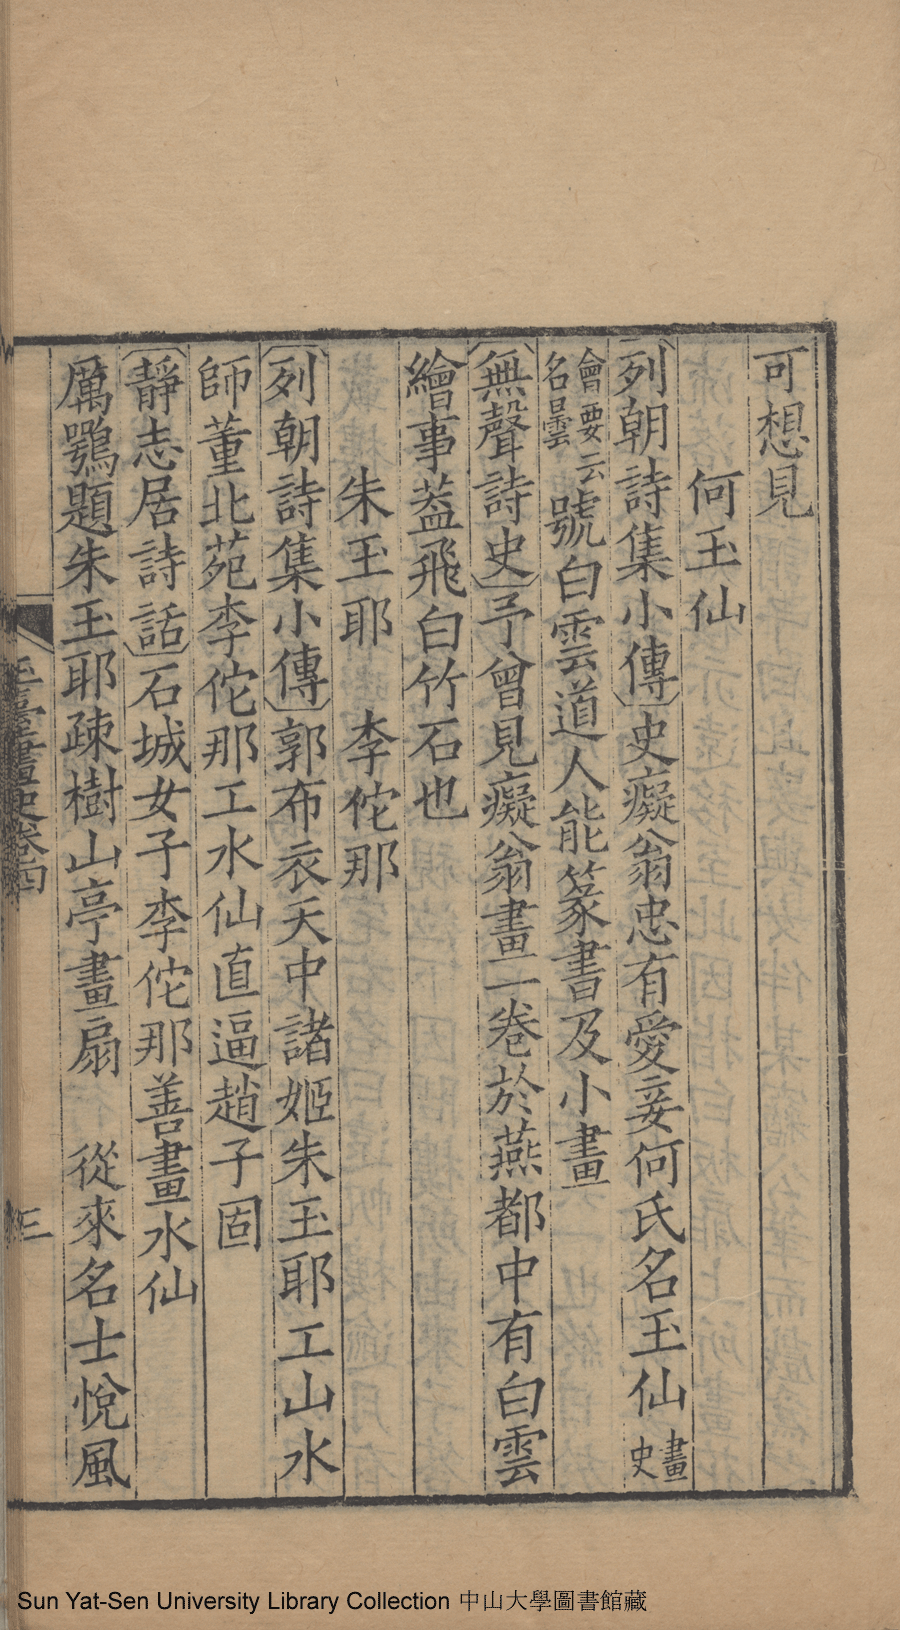 可想見
何玉仙
〔列朝詩集小傳〕史癡翁忠有愛妾何氏名玉仙畫史
會要云名曇號白雲道人能篆書及小畫
〔無聲詩史〕予曾見癡翁畫二卷於燕都中有白雲
繪事葢飛白竹石也
朱玉耶 李佗那
〔列朝詩集小傳〕郭布衣天中諸姬朱玉耶工山水
師董北苑李佗那工水仙直逼趙子固
〔靜志居詩話〕石城女子李佗那善畫水仙
厲鶚題朱玉耶疎樹山亭畫扇 從來名士悅風
玉臺畫史卷四
三
Sun Yat-Sen University Library Collection 中山大學圖書館藏